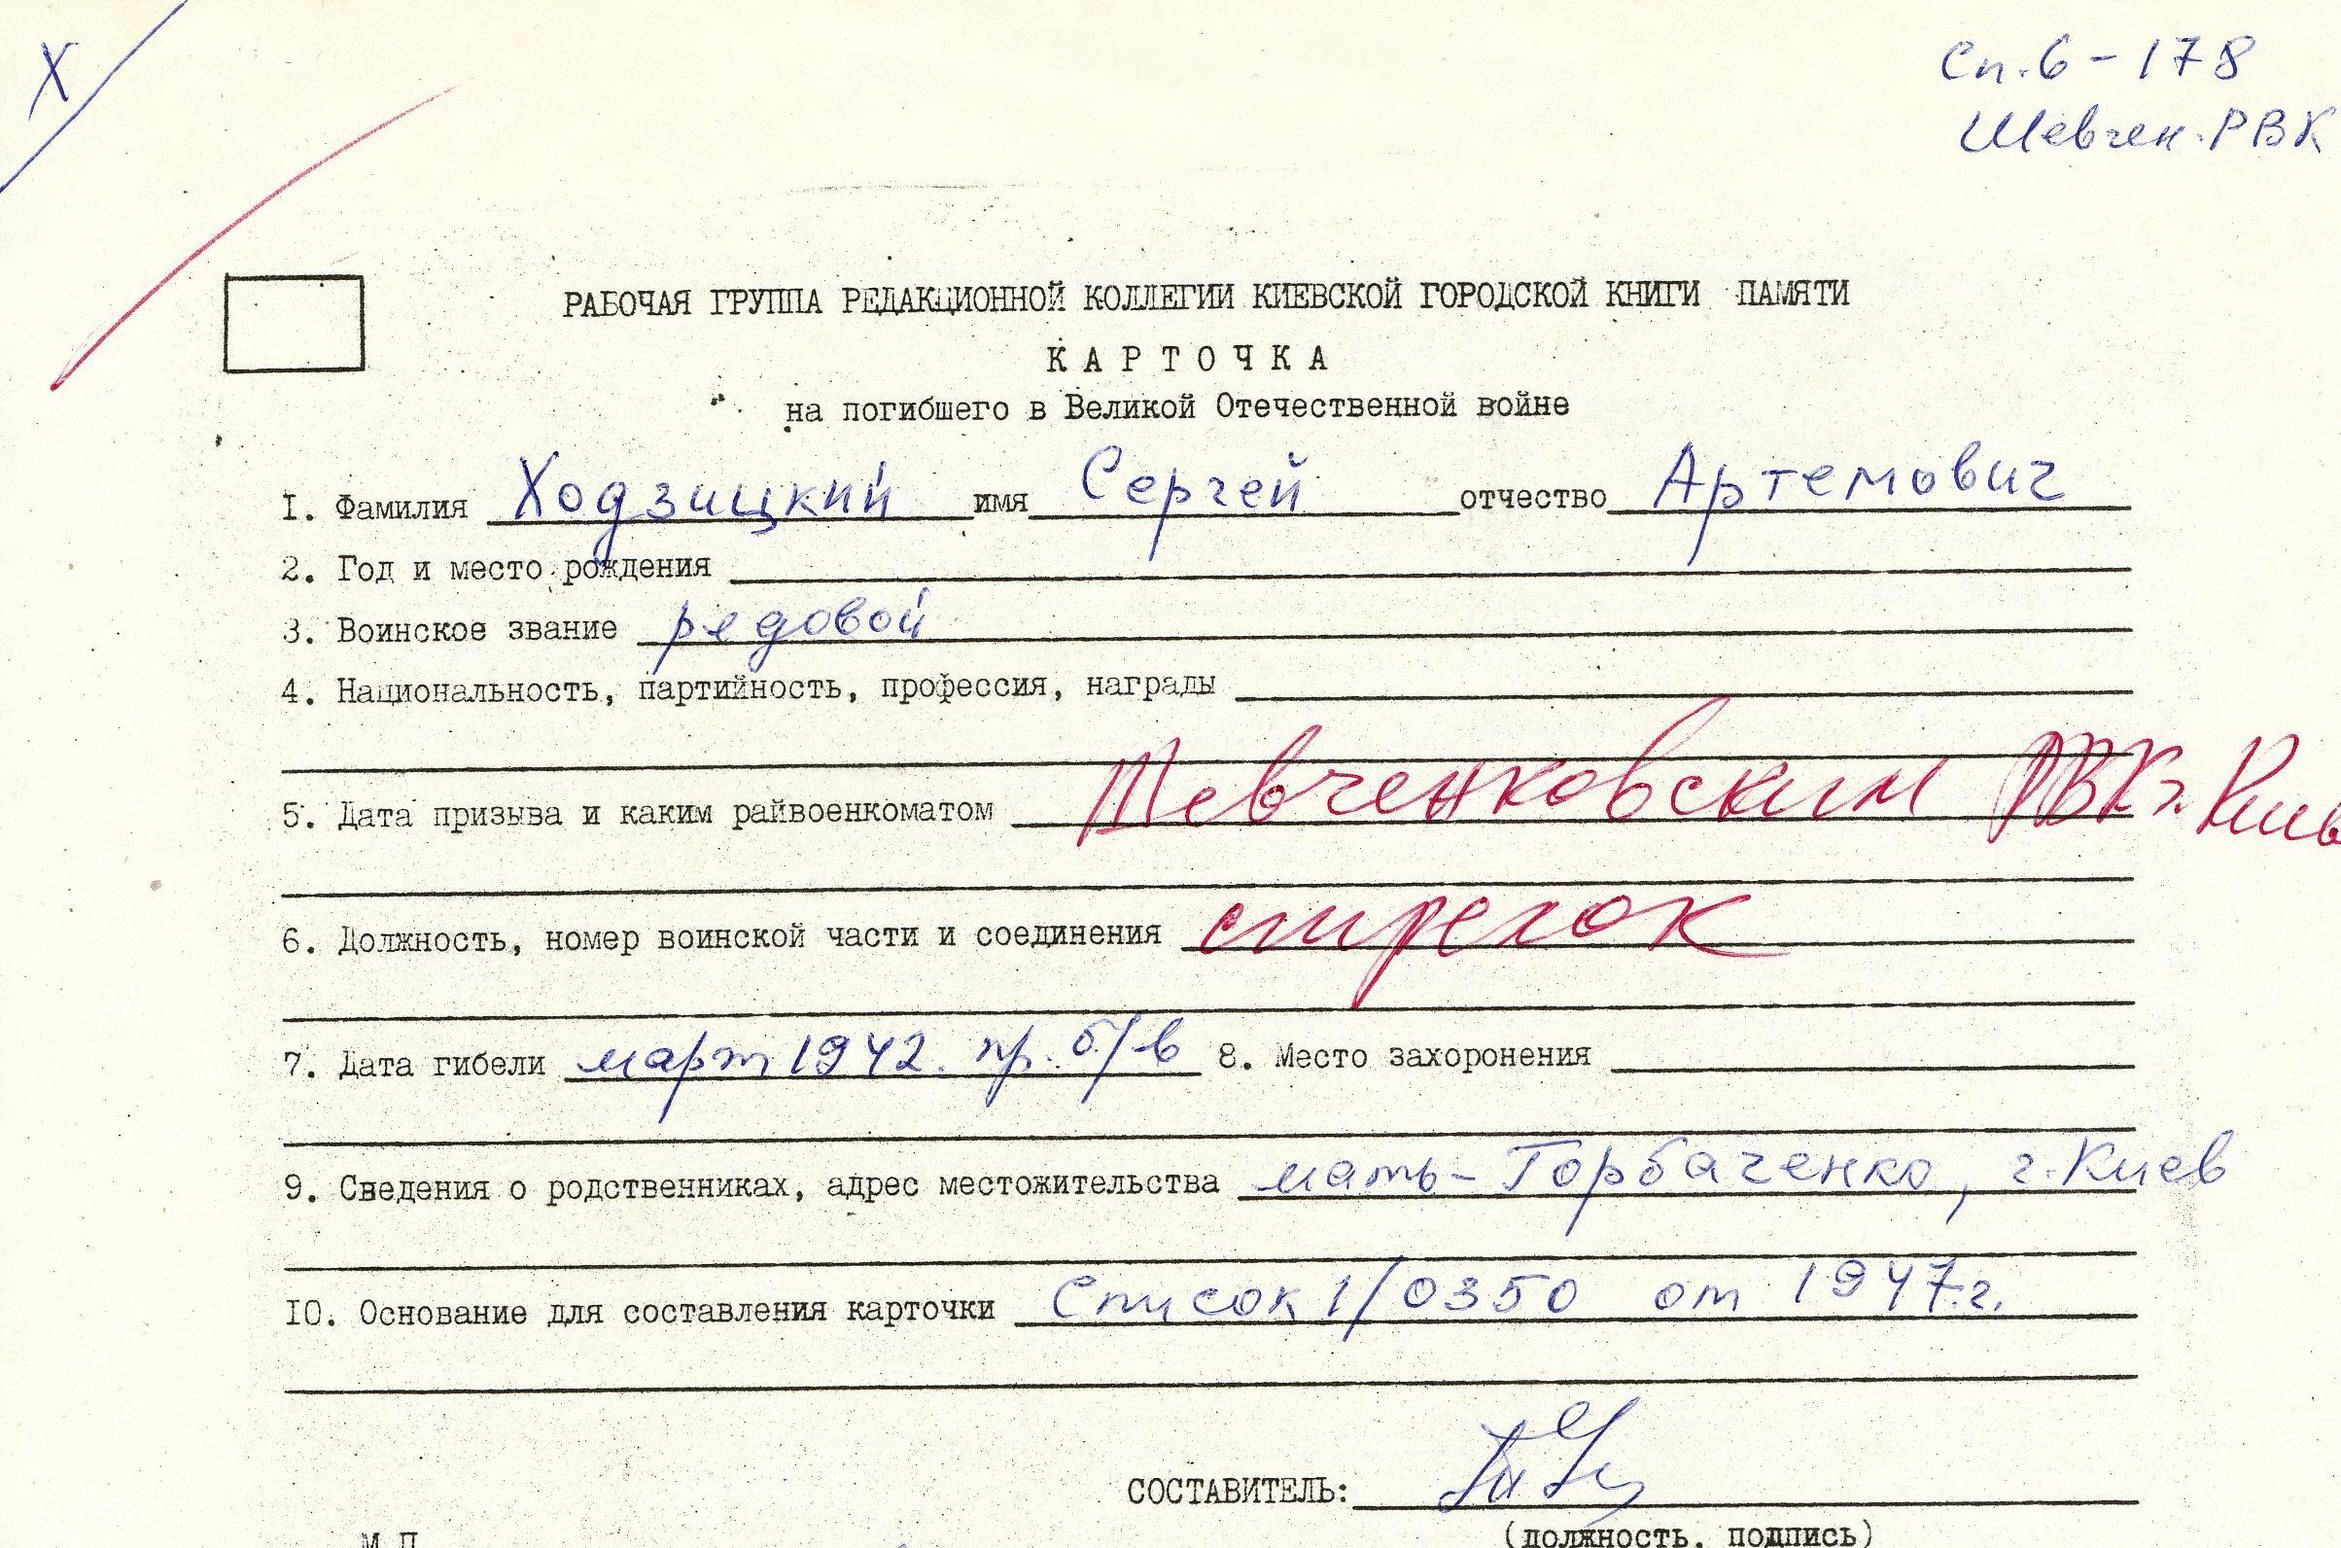 Х
Сп.6-178
Шевчен.РВК
РАБОЧАЯ ГРУППА РЕДАКЦИОННОЙ КОЛЛЕГИИ КИЕВСКОЙ ГОРОДСКОЙ КНИГИ ПАМЯТИ
КАРТОЧКА
на погибшего в Великой Отечественной войне
1. Фамилия Ходзицкий имя Сергей отчество Артемович
2. Год и место рождения
3. Воинское звание рядовой
4. Национальность, партийность, профессия, награды
5. Дата призыва и каким райвоенкоматом Шевченковским РВК г. Киев
6. Должность, номер воинской части и соединения стрелок
7. Дата гибели март 1942. пр. б/в 8. Место захоронения
9. Сведения о родственниках, адрес местожительства мать- Горбаченко, г. Киев
10. Основание для составления карточки Список 1/0350 от 1947г.
СОСТАВИТЕЛЬ:
(должность, подпись)
М.П.